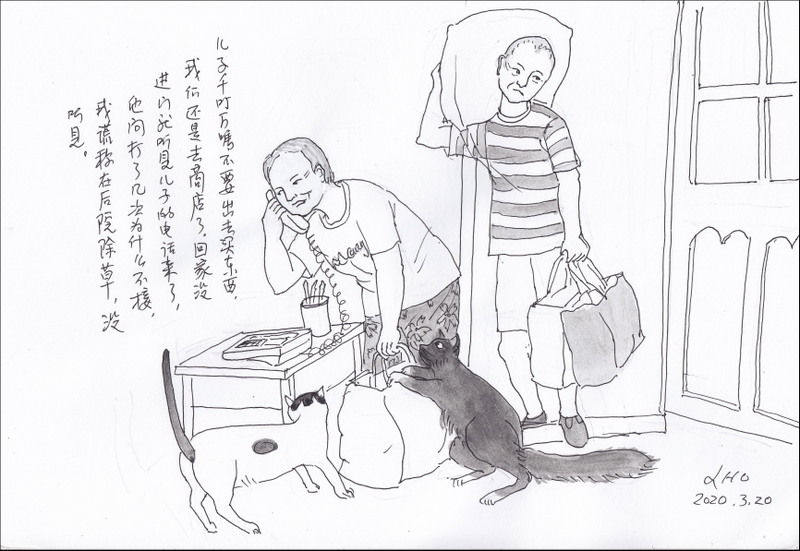 儿子千叮万嘱不要出去买东西，
我们还是去商店了，回家没
进门就听见儿子的电话来了，
他问打了几次为什么不接，
我谎称在后院除草，没
听见。
LHO
2020.3.20